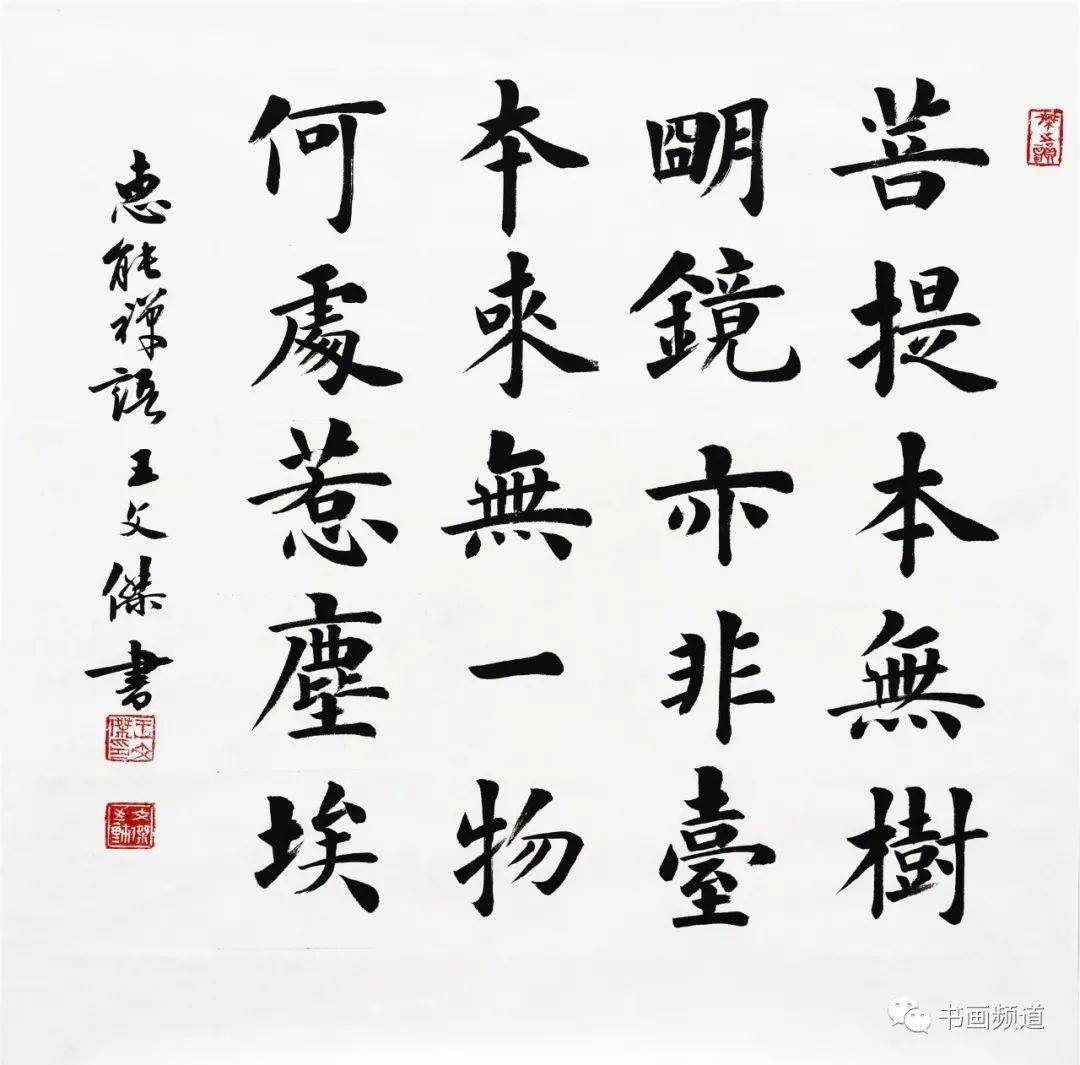 菩提本無樹
朙鏡亦非臺
本來無一物
何處惹塵埃
惠能禪語 王文傑書
王文傑印
书画频道